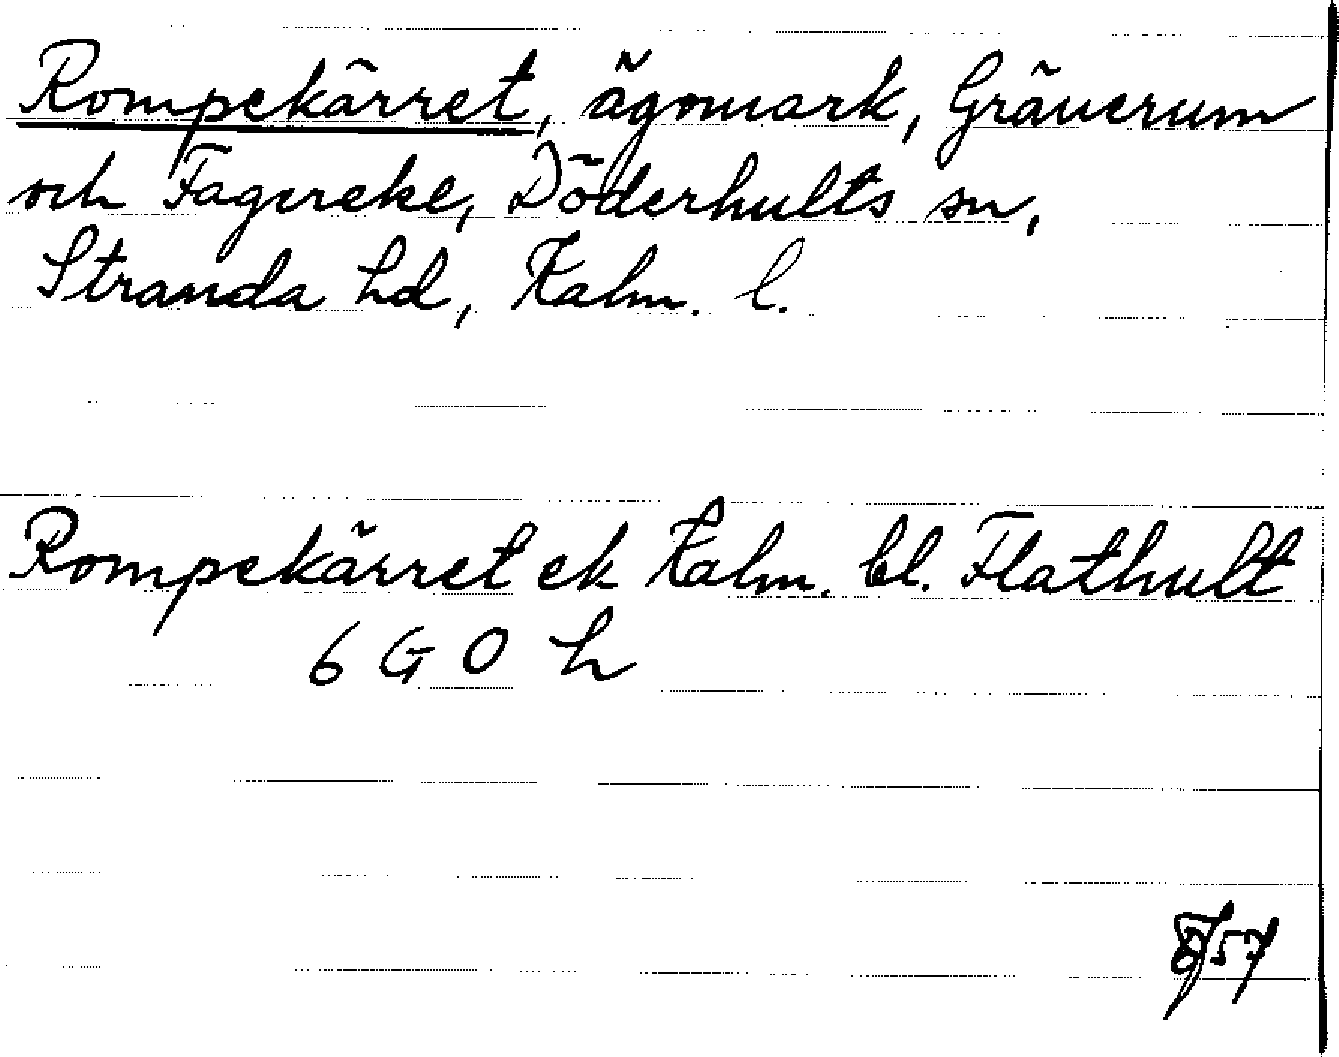 Rompekärret, ägomark, Gräverum
och Fagereke, Döderhults sn,
Stranda hd, Kalm. l.
Rompekärret ek Kalm. bl. Flathult
6 G 0 h